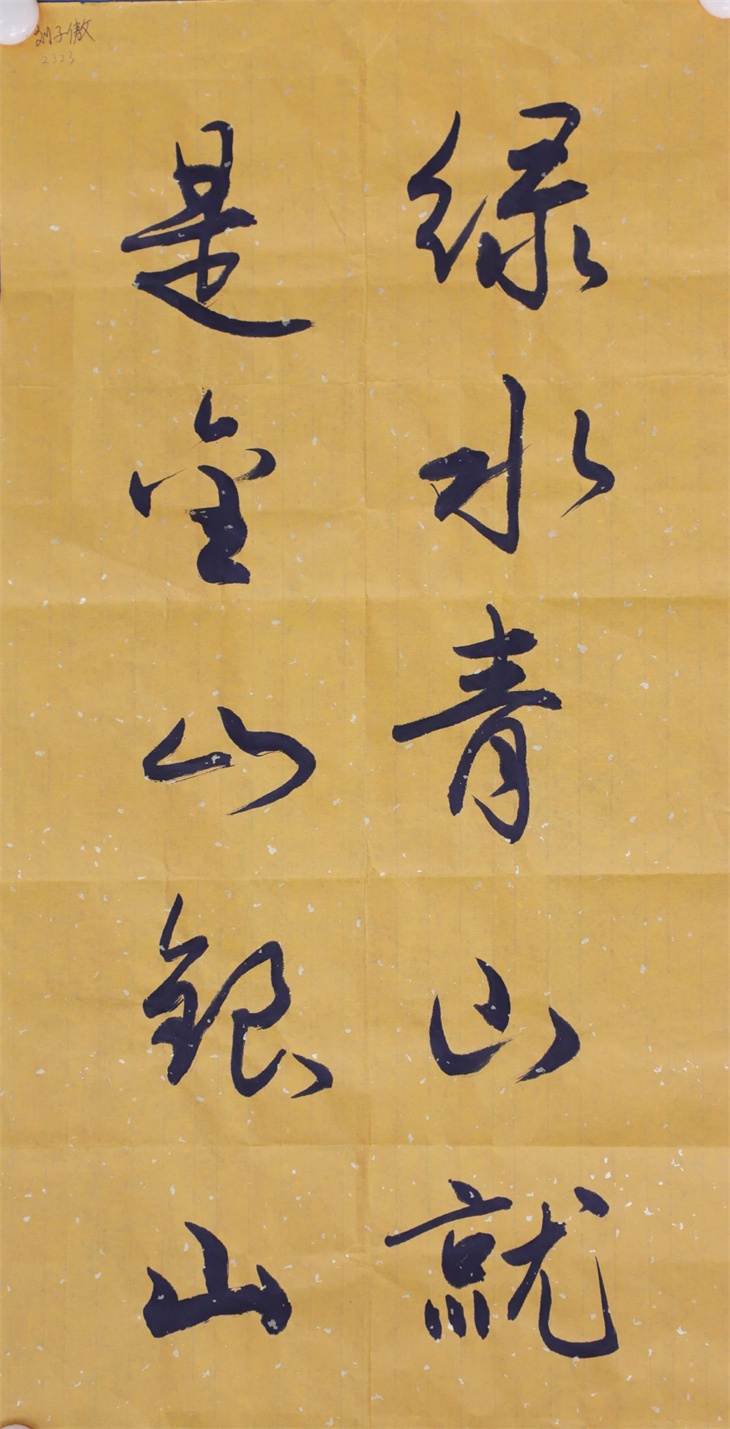 绿水青山就
是金山银山
刘子傲
2323